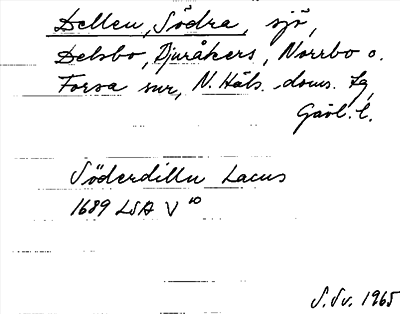 Dellen, Södra, sjö,
Delsbo, Bjuråkers, Norrbo o.
Forsa snr, N. Häls. doms. tg
Gävl. l.
Söderdilln Lacus
1689 LSA V 10
S. Sv. 1965